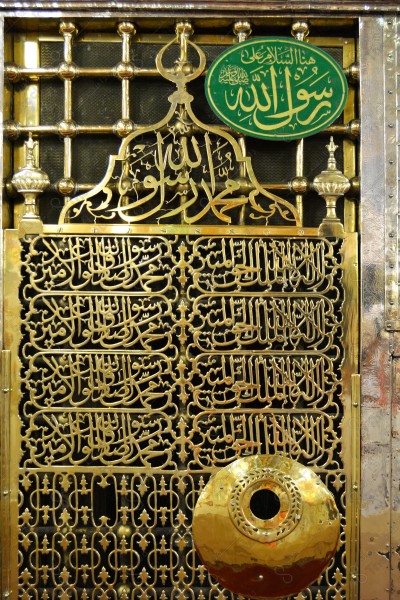 هنا السلام على
رسول الله
صلى الله عليه وسلم
محمد رسول الله
لا اله الا الله الملك الحق المبين
محمد رسول الله صادق الوعد الامين
لا اله الا الله الملك الحق المبين
محمد رسول الله صادق الوعد الامين
لا اله الا الله الملك الحق المبين
محمد رسول الله صادق الوعد الامين
لا اله الا الله الملك الحق المبين
محمد رسول الله صادق الوعد الامين